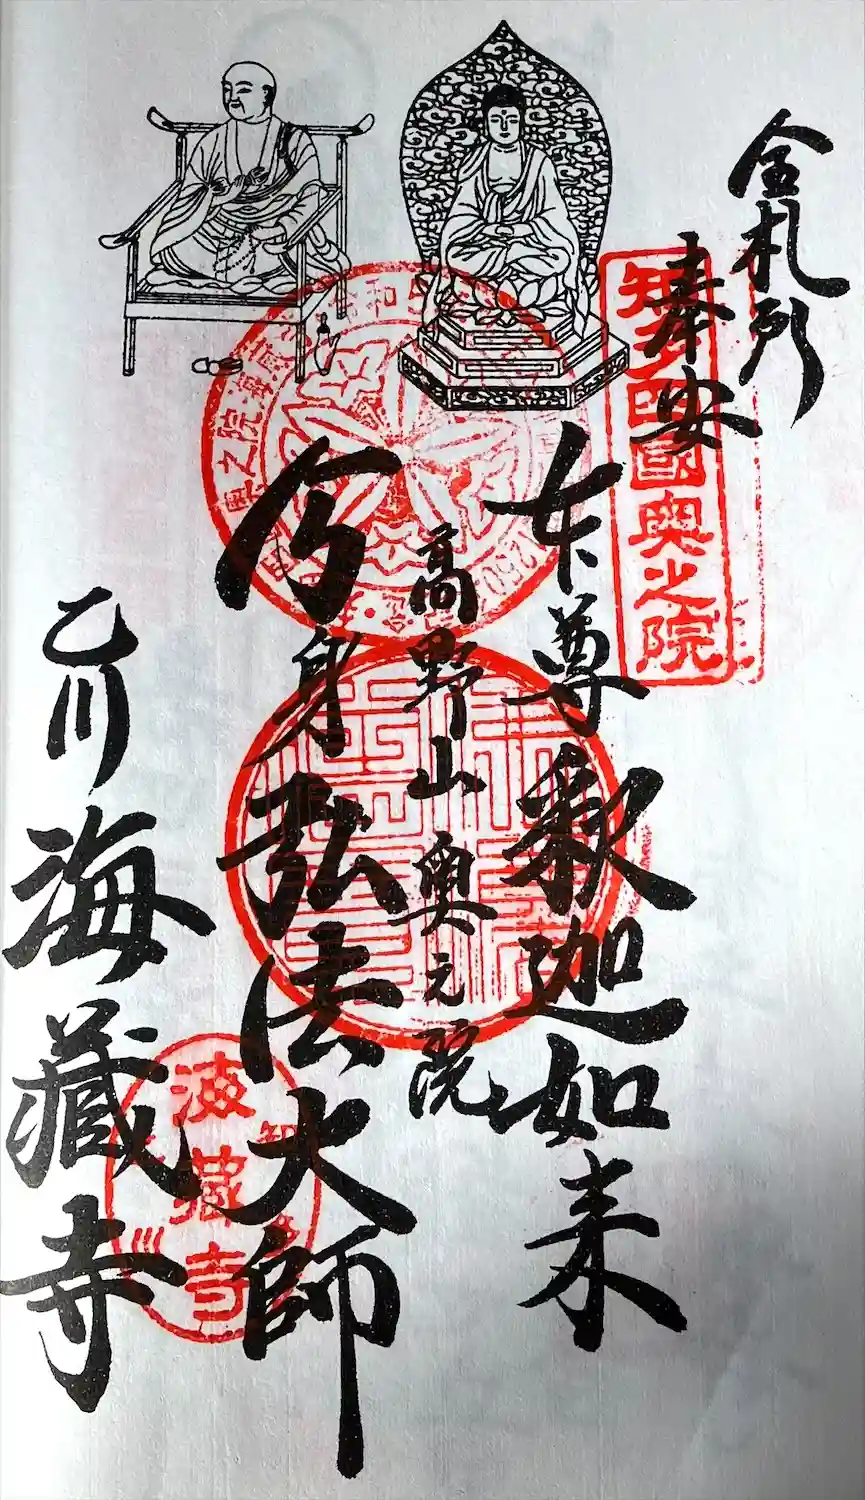 全札所
奉安
知多四國奥之院
本尊 釈迦如来
高野山奥之院
分身弘法大師
乙川 海藏寺
海藏寺